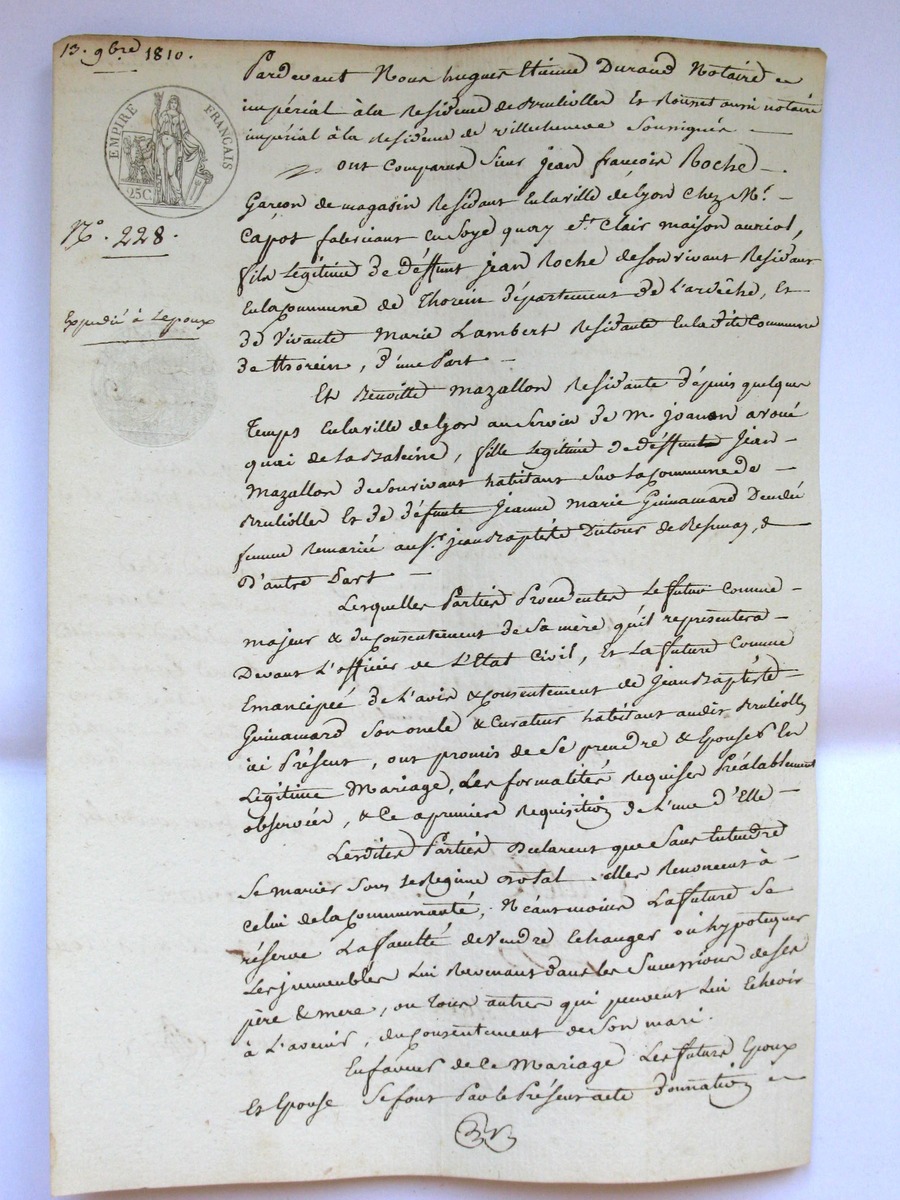 13. 9bre 1810.
EMPIRE FRANÇAIS
25C
N.o 228.
Expedié à Lepoux
Pardevant Nous hugues Etienne Durand Notaire
impérial à la Residence de Brullioller Et Ronnet aussi notaire
impérial à la residence de villechenève Soussignés —
ont comparus Sieur jean françois Roche —.
Garçon de magasin Residant En la ville de Lyon chez Mr. —
Capot fabricant En Soye quay St. Clair maison auriol,
fils Legitime de déffunt jean Roche de son vivant Residant
En la Commune de Thorein département de L'ardèche, Et
de Vivante Marie Lambert Residante En la dite Commune
de thorein, d'une Part —
Et Benoitte Mazallon Residante dépuis quelque
Temps En la ville de Lyon au Service de m. joanon avoué
quai de La Baleine, fille Legitime de déffunt Jean —
Mazallon de Son vivant habitant Sur La Commune de —
Brulioller Et de défunte Jeanne Marie Guinamard Décédée
femme Remariée au Sr. jean Baptiste Dutour de
d'autre Part —
Lesquelles Parties Procedentes Le futur Comme —
majeur & du Consentement de Sa mère qu'il representera —
Devant L'officier de L'Etat Civil, Et La future Comme
Emancipée de L'avis & Consentement de Jean Baptiste —
Guinamard Son oncle & Curateur habitant audit Brulioller
ici Présent, ont promis de Se prendre & Epouser En
Légitime Mariage, Les formalités requises Préalablement
observées, & Ce a premiere Requisition de L'une d'Elle —
Lesdites Parties Declarent que Sans Entendre
Se marier Sous Le Regime dotal Elles Renoncent à —
Celui de la Communauté, Néanmoins La future Se
réserve La faculté de Vendre Echanger où hypotequer
Les jmmeubles Lui Revenant dans les Successions de Ses
père & mere, ou Tous autres qui peuvent Lui Echeoir
à L'avenir, du Consentement de Son mari.
En faveur de Ce Mariage Les futurs Epoux
Et Epouse Se font Par le Présent acte Donnation